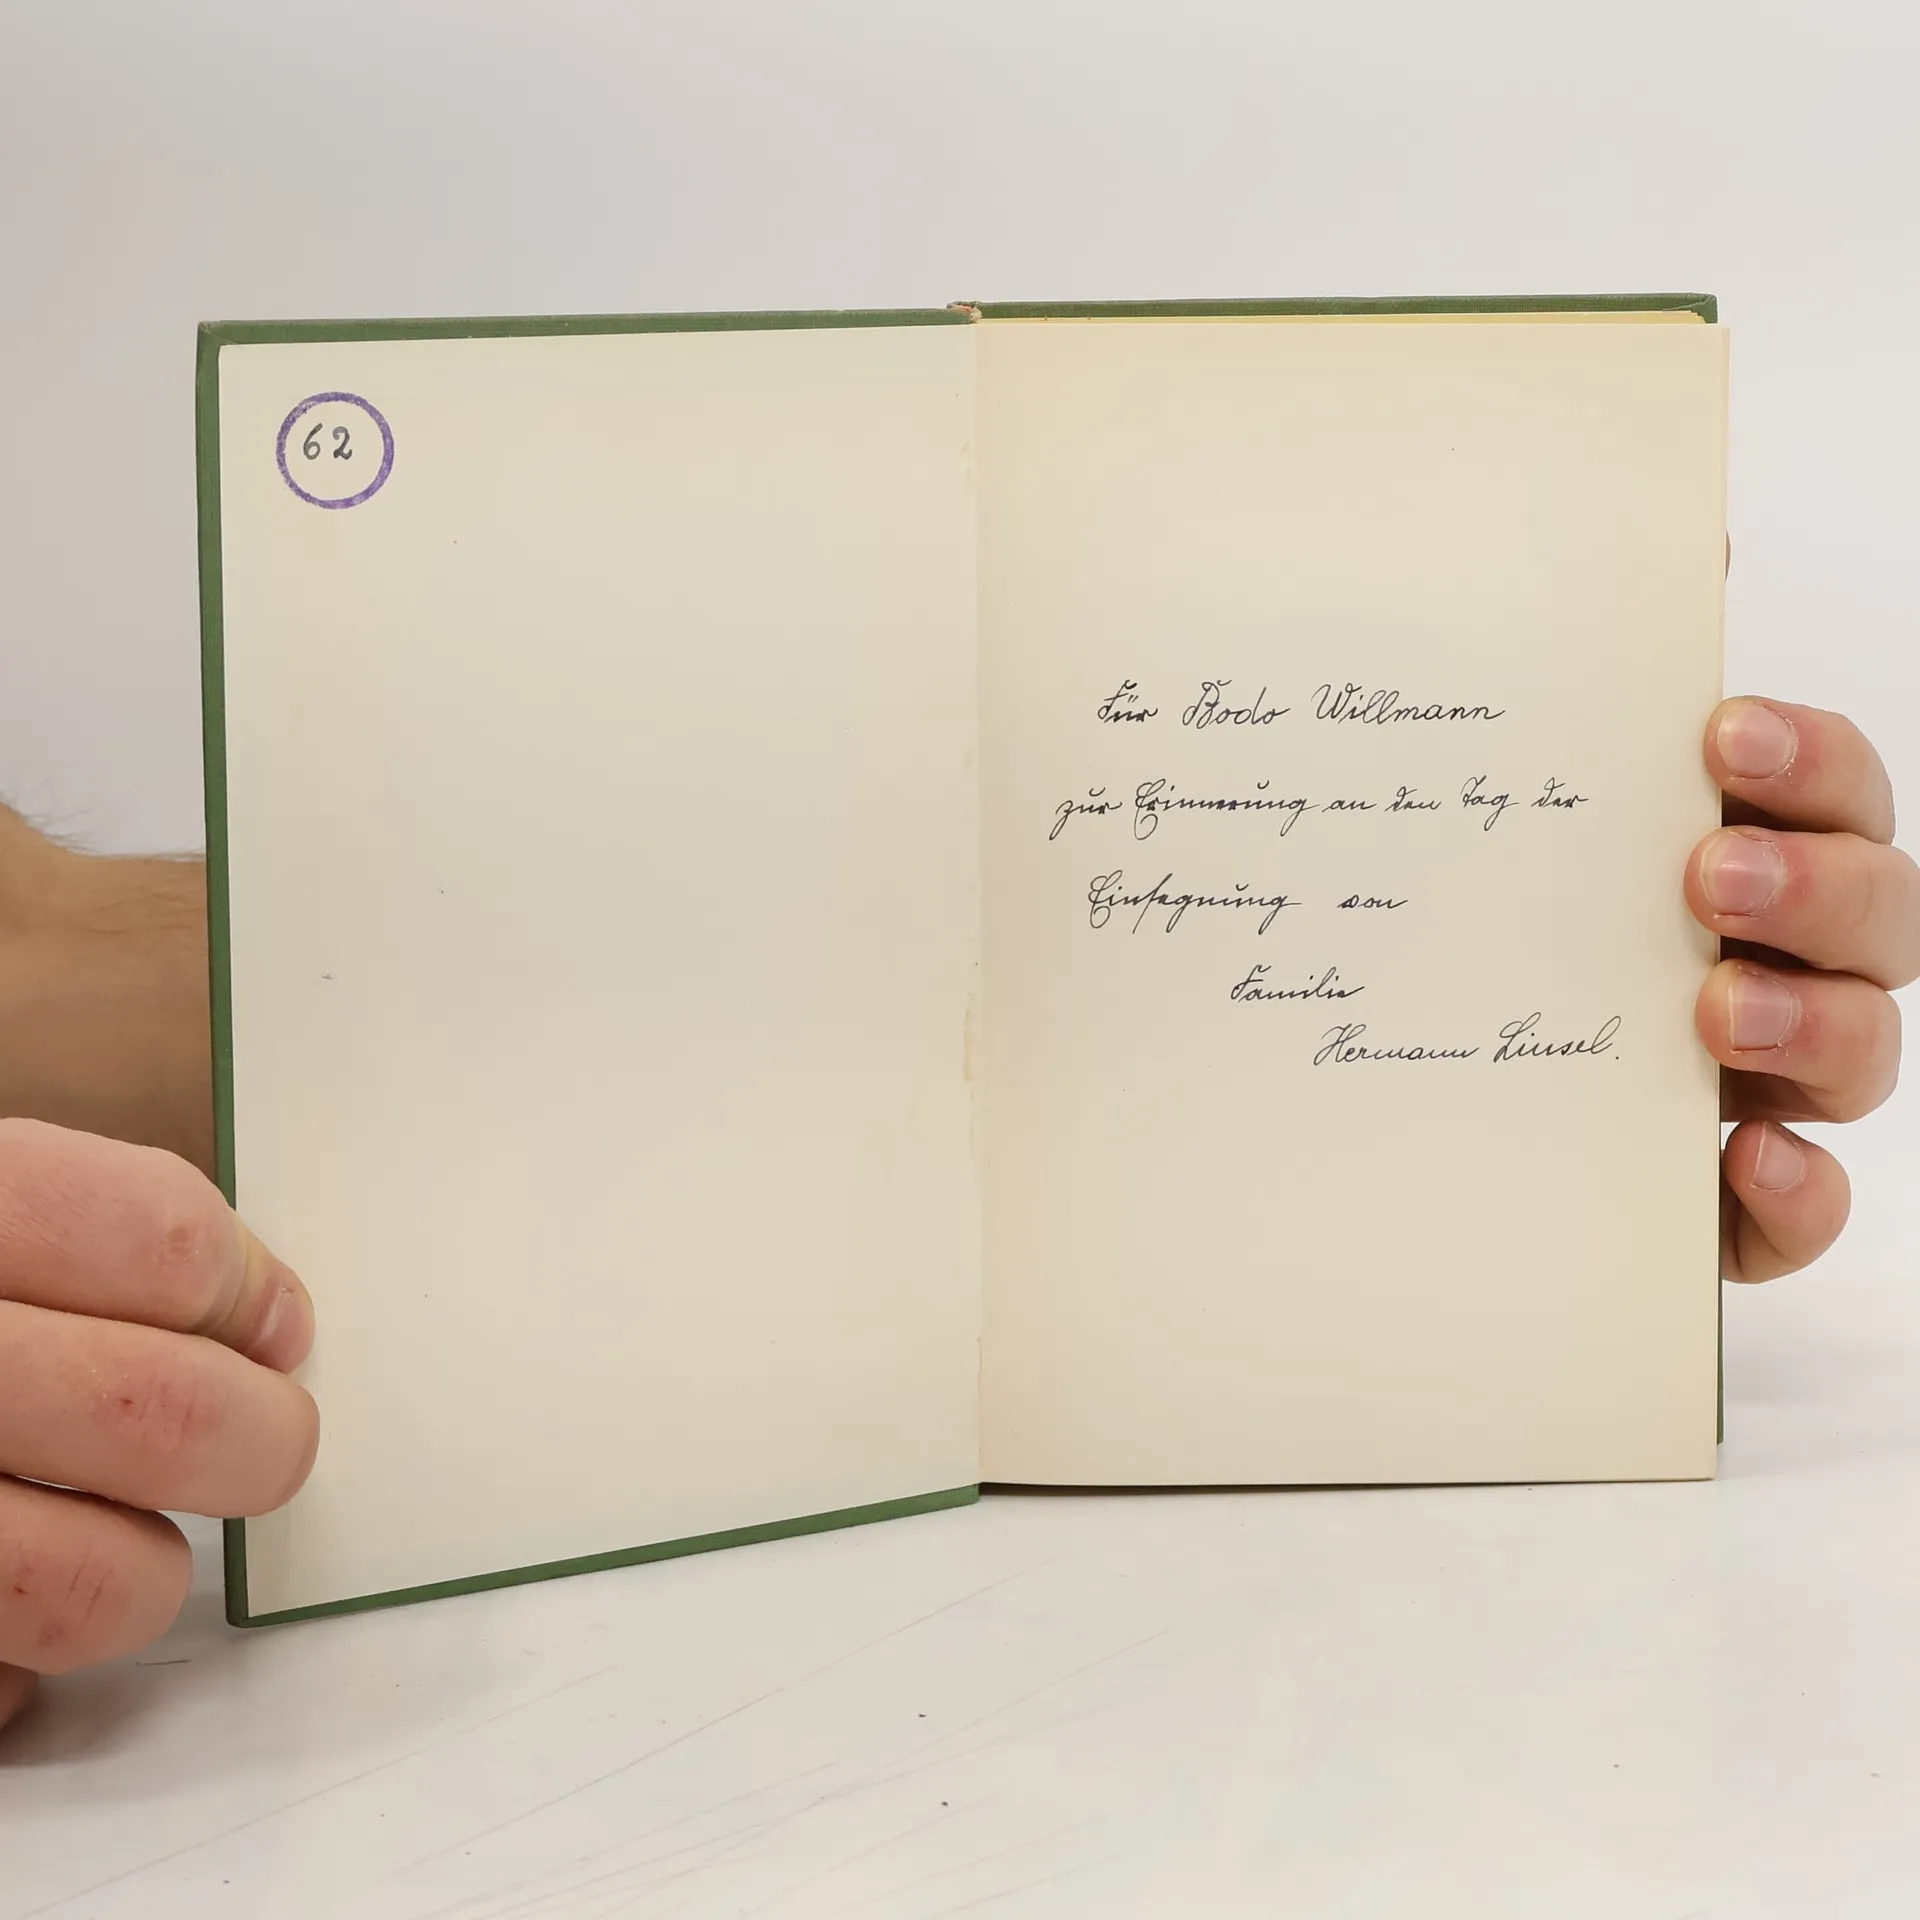 62
Für Bodo Willmann
zur Erinnerung an den Tag der
Einsegnung von
Familie
Hermann Linsel.